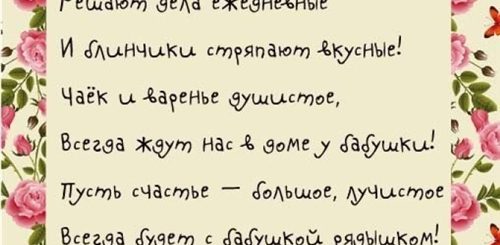 Решают дела ежедневные
И блинчики стряпают вкусные!
Чаёк и варенье душистое,
Всегда ждут нас в доме у бабушки!
Пусть счастье — большое, лучистое
Всегда будет с бабушкой рядышком!